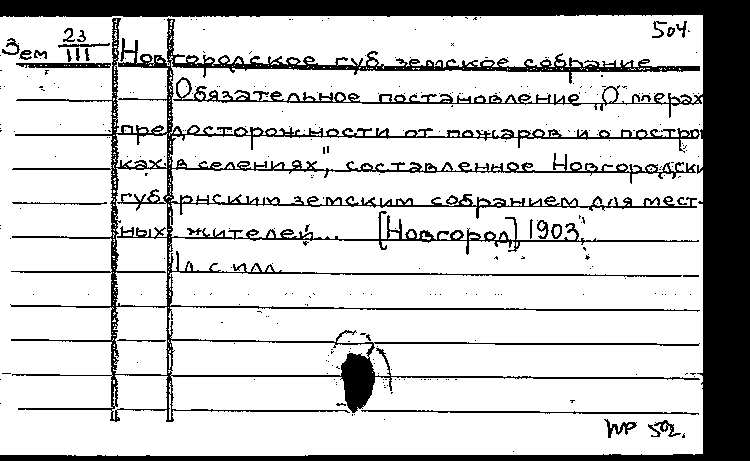 504
Зем 23/III Новгородское губ. земское собрание
Обязательное постановление „О мерах
предосторожности от пожаров и о построй
ках в селениях", составленное Новгородски
губернским земским собранием для мест-
ных жителей... [Новгород], 1903,
1 л. с илл.
502.